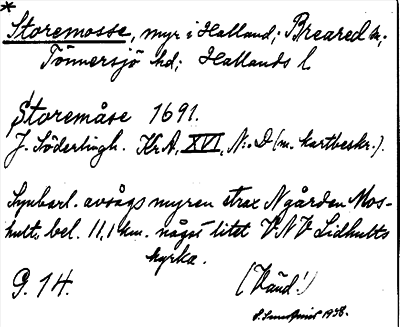 *
Storemosse, myr i Halland; Breared sn;
Tönnersjö hd; Hallands l.
Storemåse 1691.
J. Söderlingh. Kr.A, XVI, N:o D (m. kartbeskr.).
Synbarl. avsågs myren strax N gården Mos-
hult, bel. 11,1 km. något litet VNV Lidhults
kyrka.
G. 14.
(Vänd!)
1938.